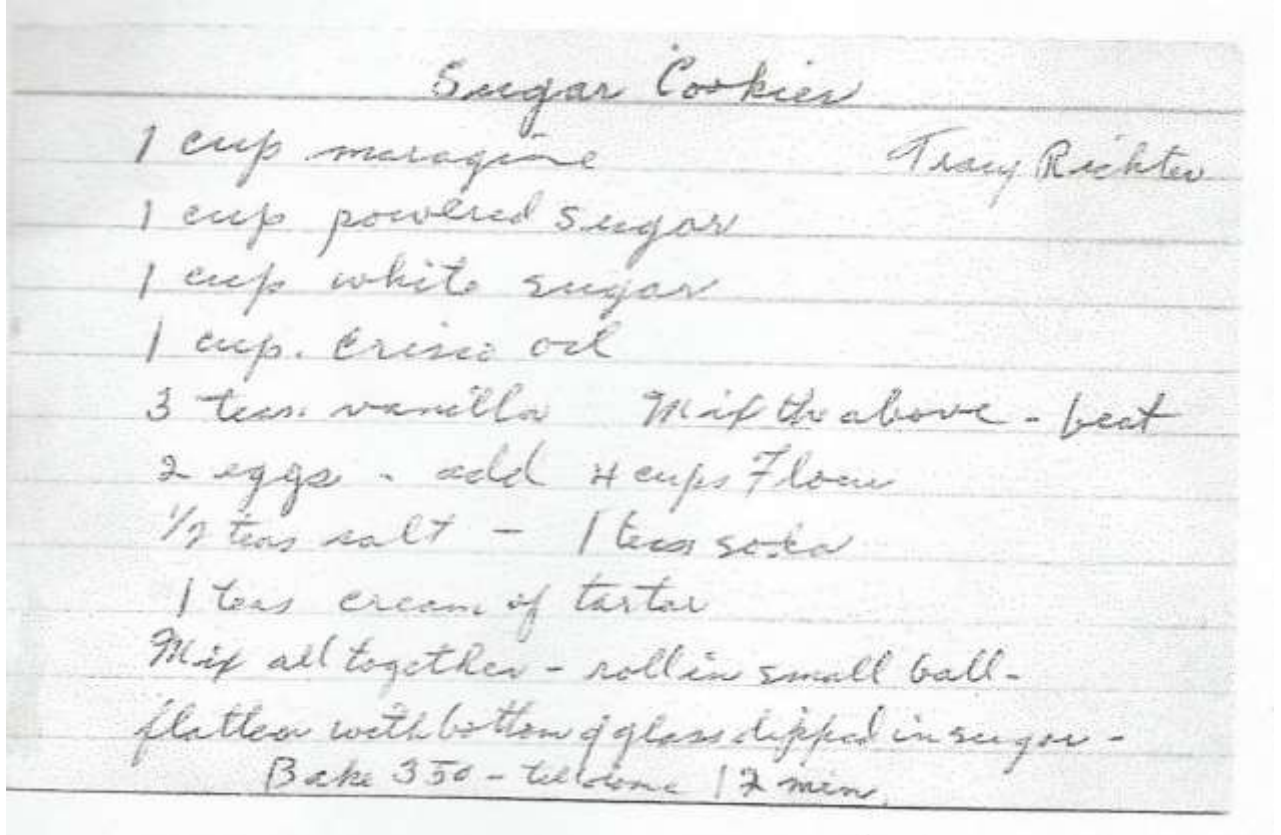 Sugar Cookies
1 cup maragine Tracy Richter
1 cup powered sugar
1 cup white sugar
1 cup. Crisco oil
3 teas. vanilla Mix the above - beat
2 eggs - add 4 cups Flour
1/2 teas salt - 1 teas soda
1 teas cream of tartar
Mix all together - roll in small ball -
flatten with bottom of glass dipped in sugar -
Bake 350 - till done 12 min.